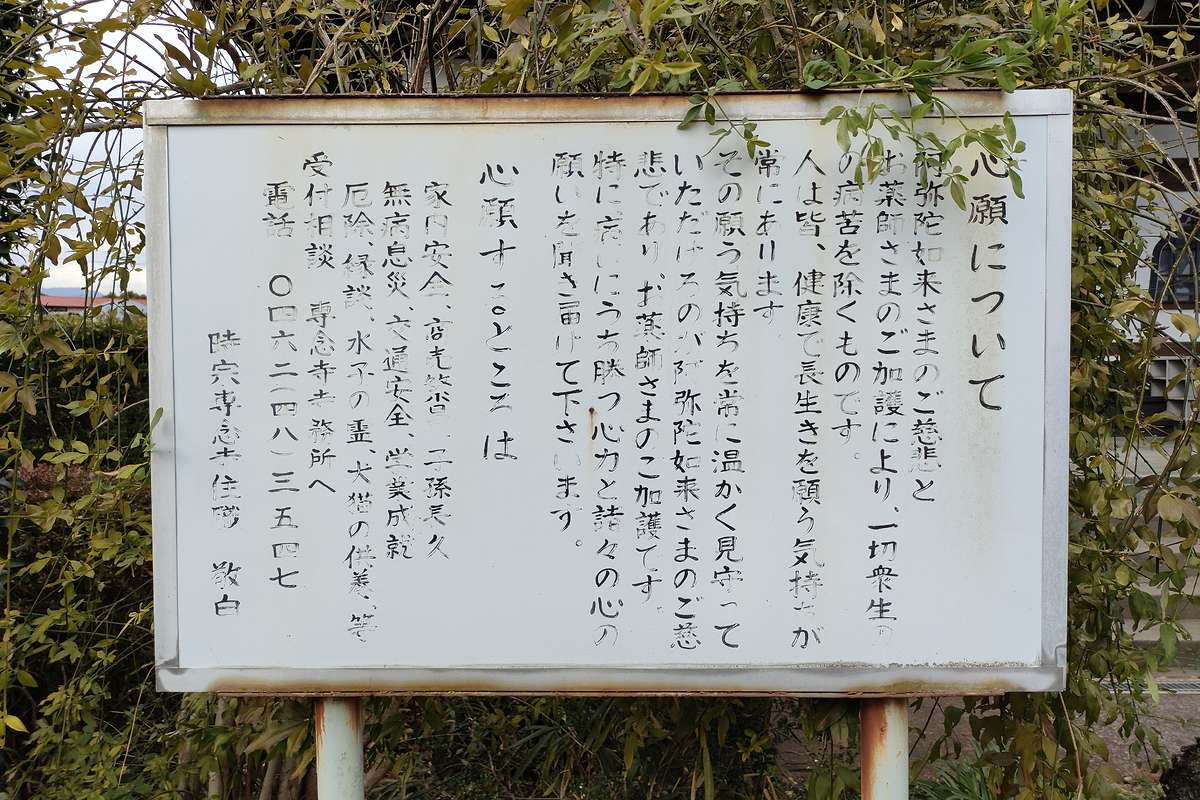 心願について
阿弥陀如来さまのご慈悲と
お薬師さまのご加護により、一切衆生の
の病苦を除くものです。
人は皆、健康で長生きを願う気持ちが
常にあります
その願う気持ちを常に温かく見守って
いただけるのが阿弥陀如来さまのご慈
悲であり、お薬師さまのご加護です。
特に病いにうち勝つ心力と諸々の心の
願いを聞き届けて下さいます。
心願するところは
家内安全、商売繁盛、子孫長久
無病息災、交通安全、学業成就
厄除、縁談、水子の霊、犬猫の供養、等
受付相談 専念寺寺務所へ
電話 〇四六二(四八)三五四七
時宗専念寺住職 敬白